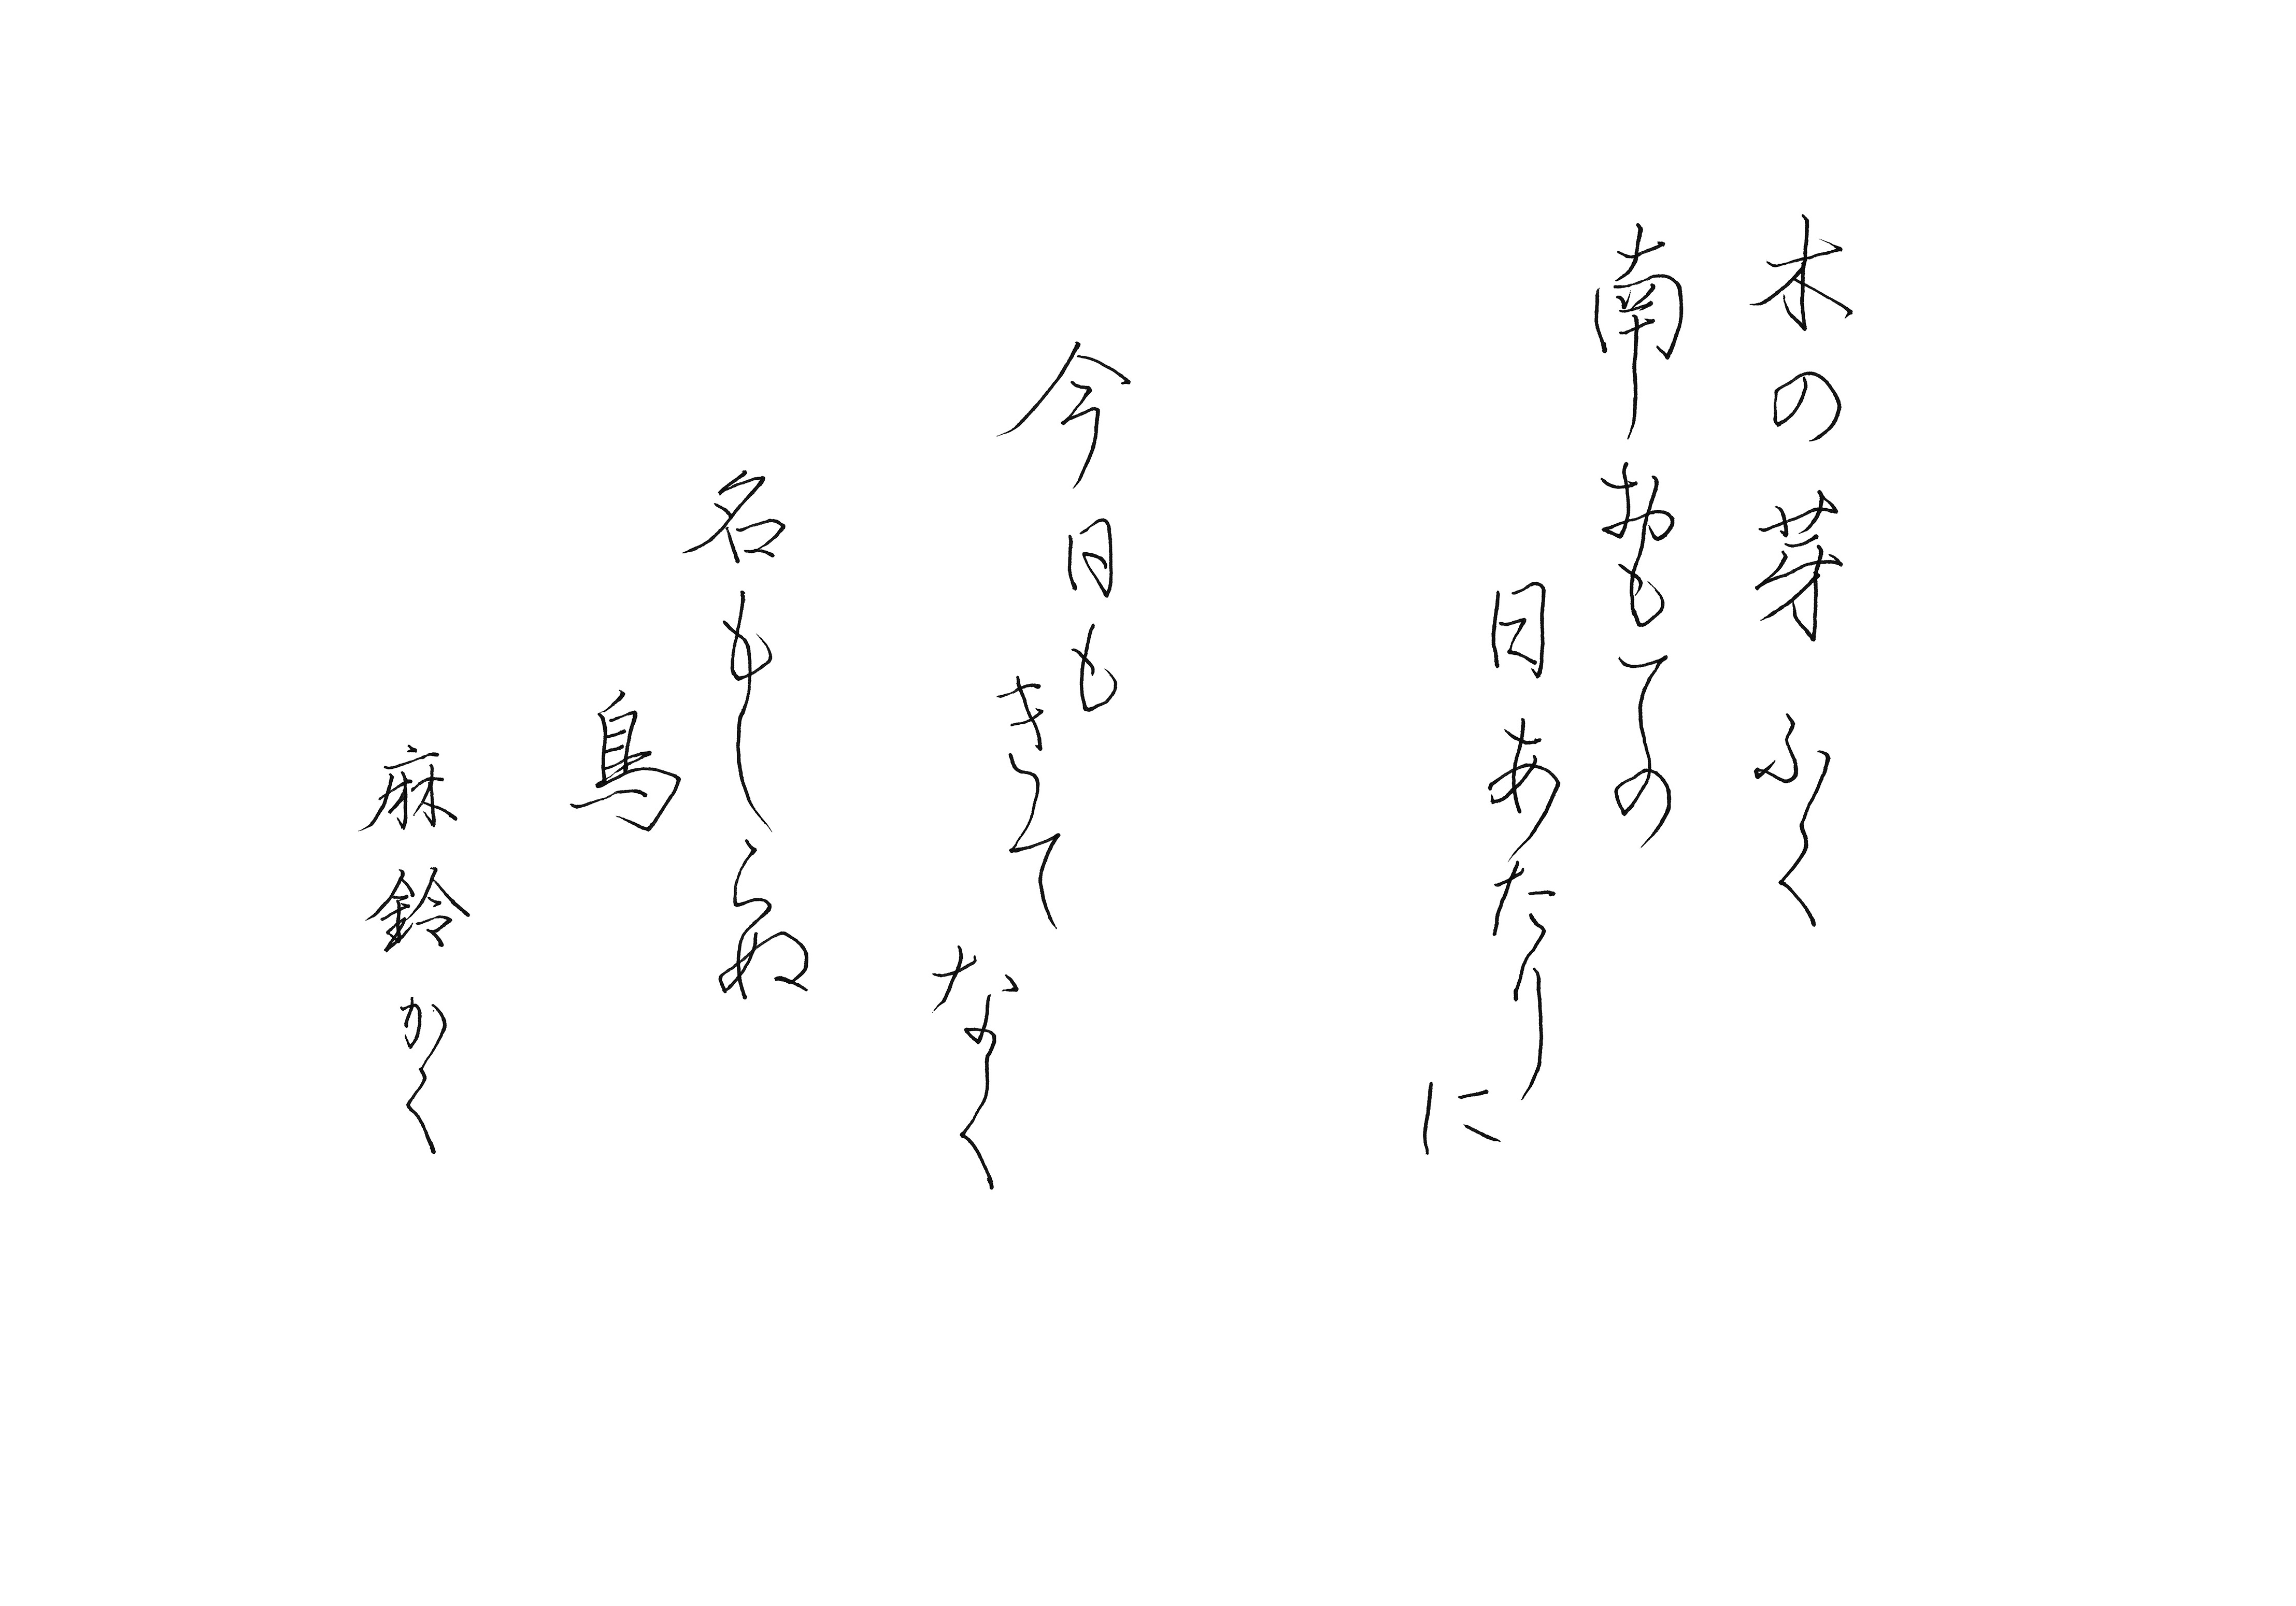 木の芽ふく
南おもての
日あたりに
今日も
きて
なく
名もしらぬ
鳥
麻鈴かく